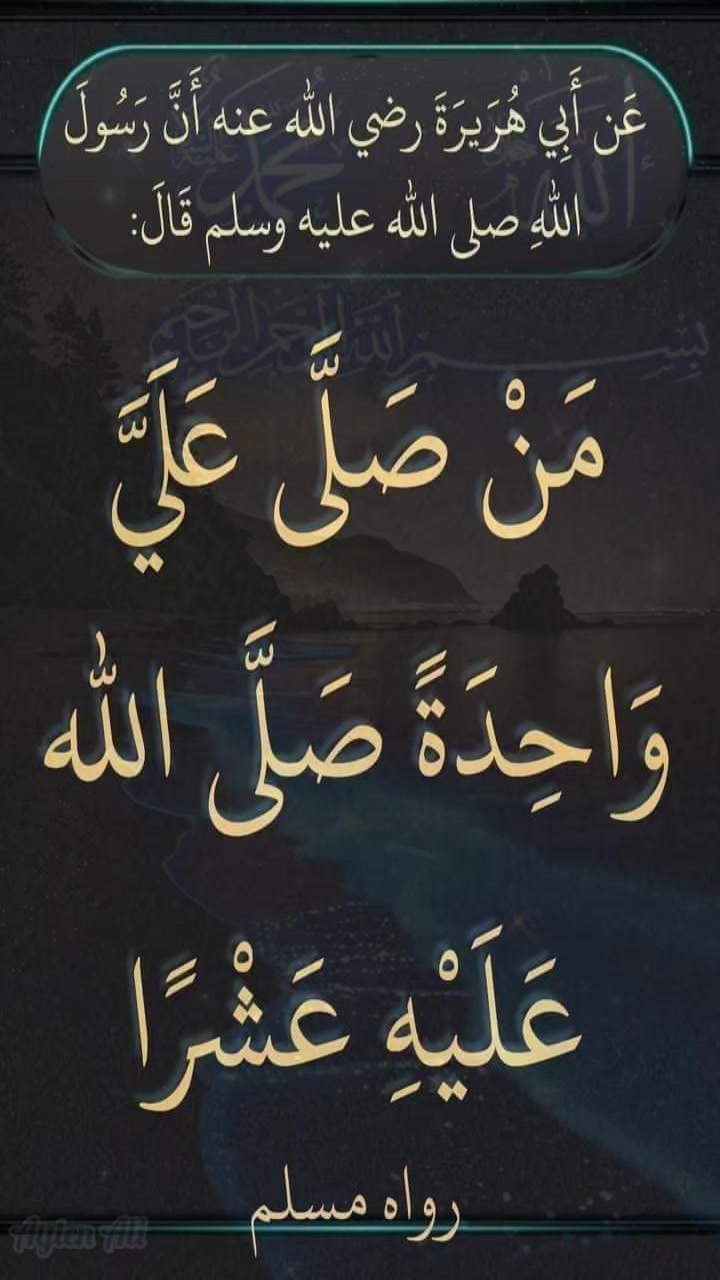 عَن أَبِي هُرَيرَةَ رضي الله عنه أَنَّ رَسُولَ
اللهِ صلى الله عليه وسلم قَالَ:
بسم الله الرحمن الرحيم
مَنْ صَلَّى عَلَيَّ
وَاحِدَةً صَلَّى الله
عَلَيْهِ عَشْرًا
رواه مسلم
Ayten Ali